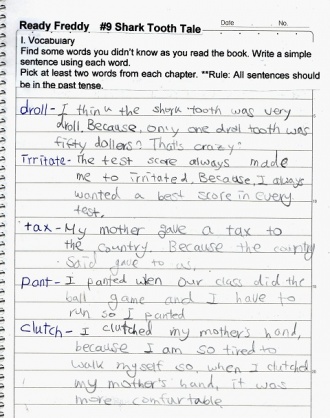 Ready Freddy #9 Shark Tooth Tale
Date No.
I. Vocabulary
Find some words you didn't know as you read the book. Write a simple
sentence using each word.
Pick at least two words from each chapter. **Rule: All sentences should
be in the past tense.
droll - I think the shark tooth was very
droll. Because, only one droll tooth was
fifty dollars? That's crazy?
Irritate - The test score always made
me to irritated. Because, I always
wanted a best score in every
test.
tax - My mother gave a tax to
the country. Because the country
said gave to us.
Pant - I panted when our class did the
ball game and I have to
run so I panted
Clutch - I clutched my mother's hand,
because I am so tired to
walk myself so, when I clutched
my mother's hand, it was
more comfurtable